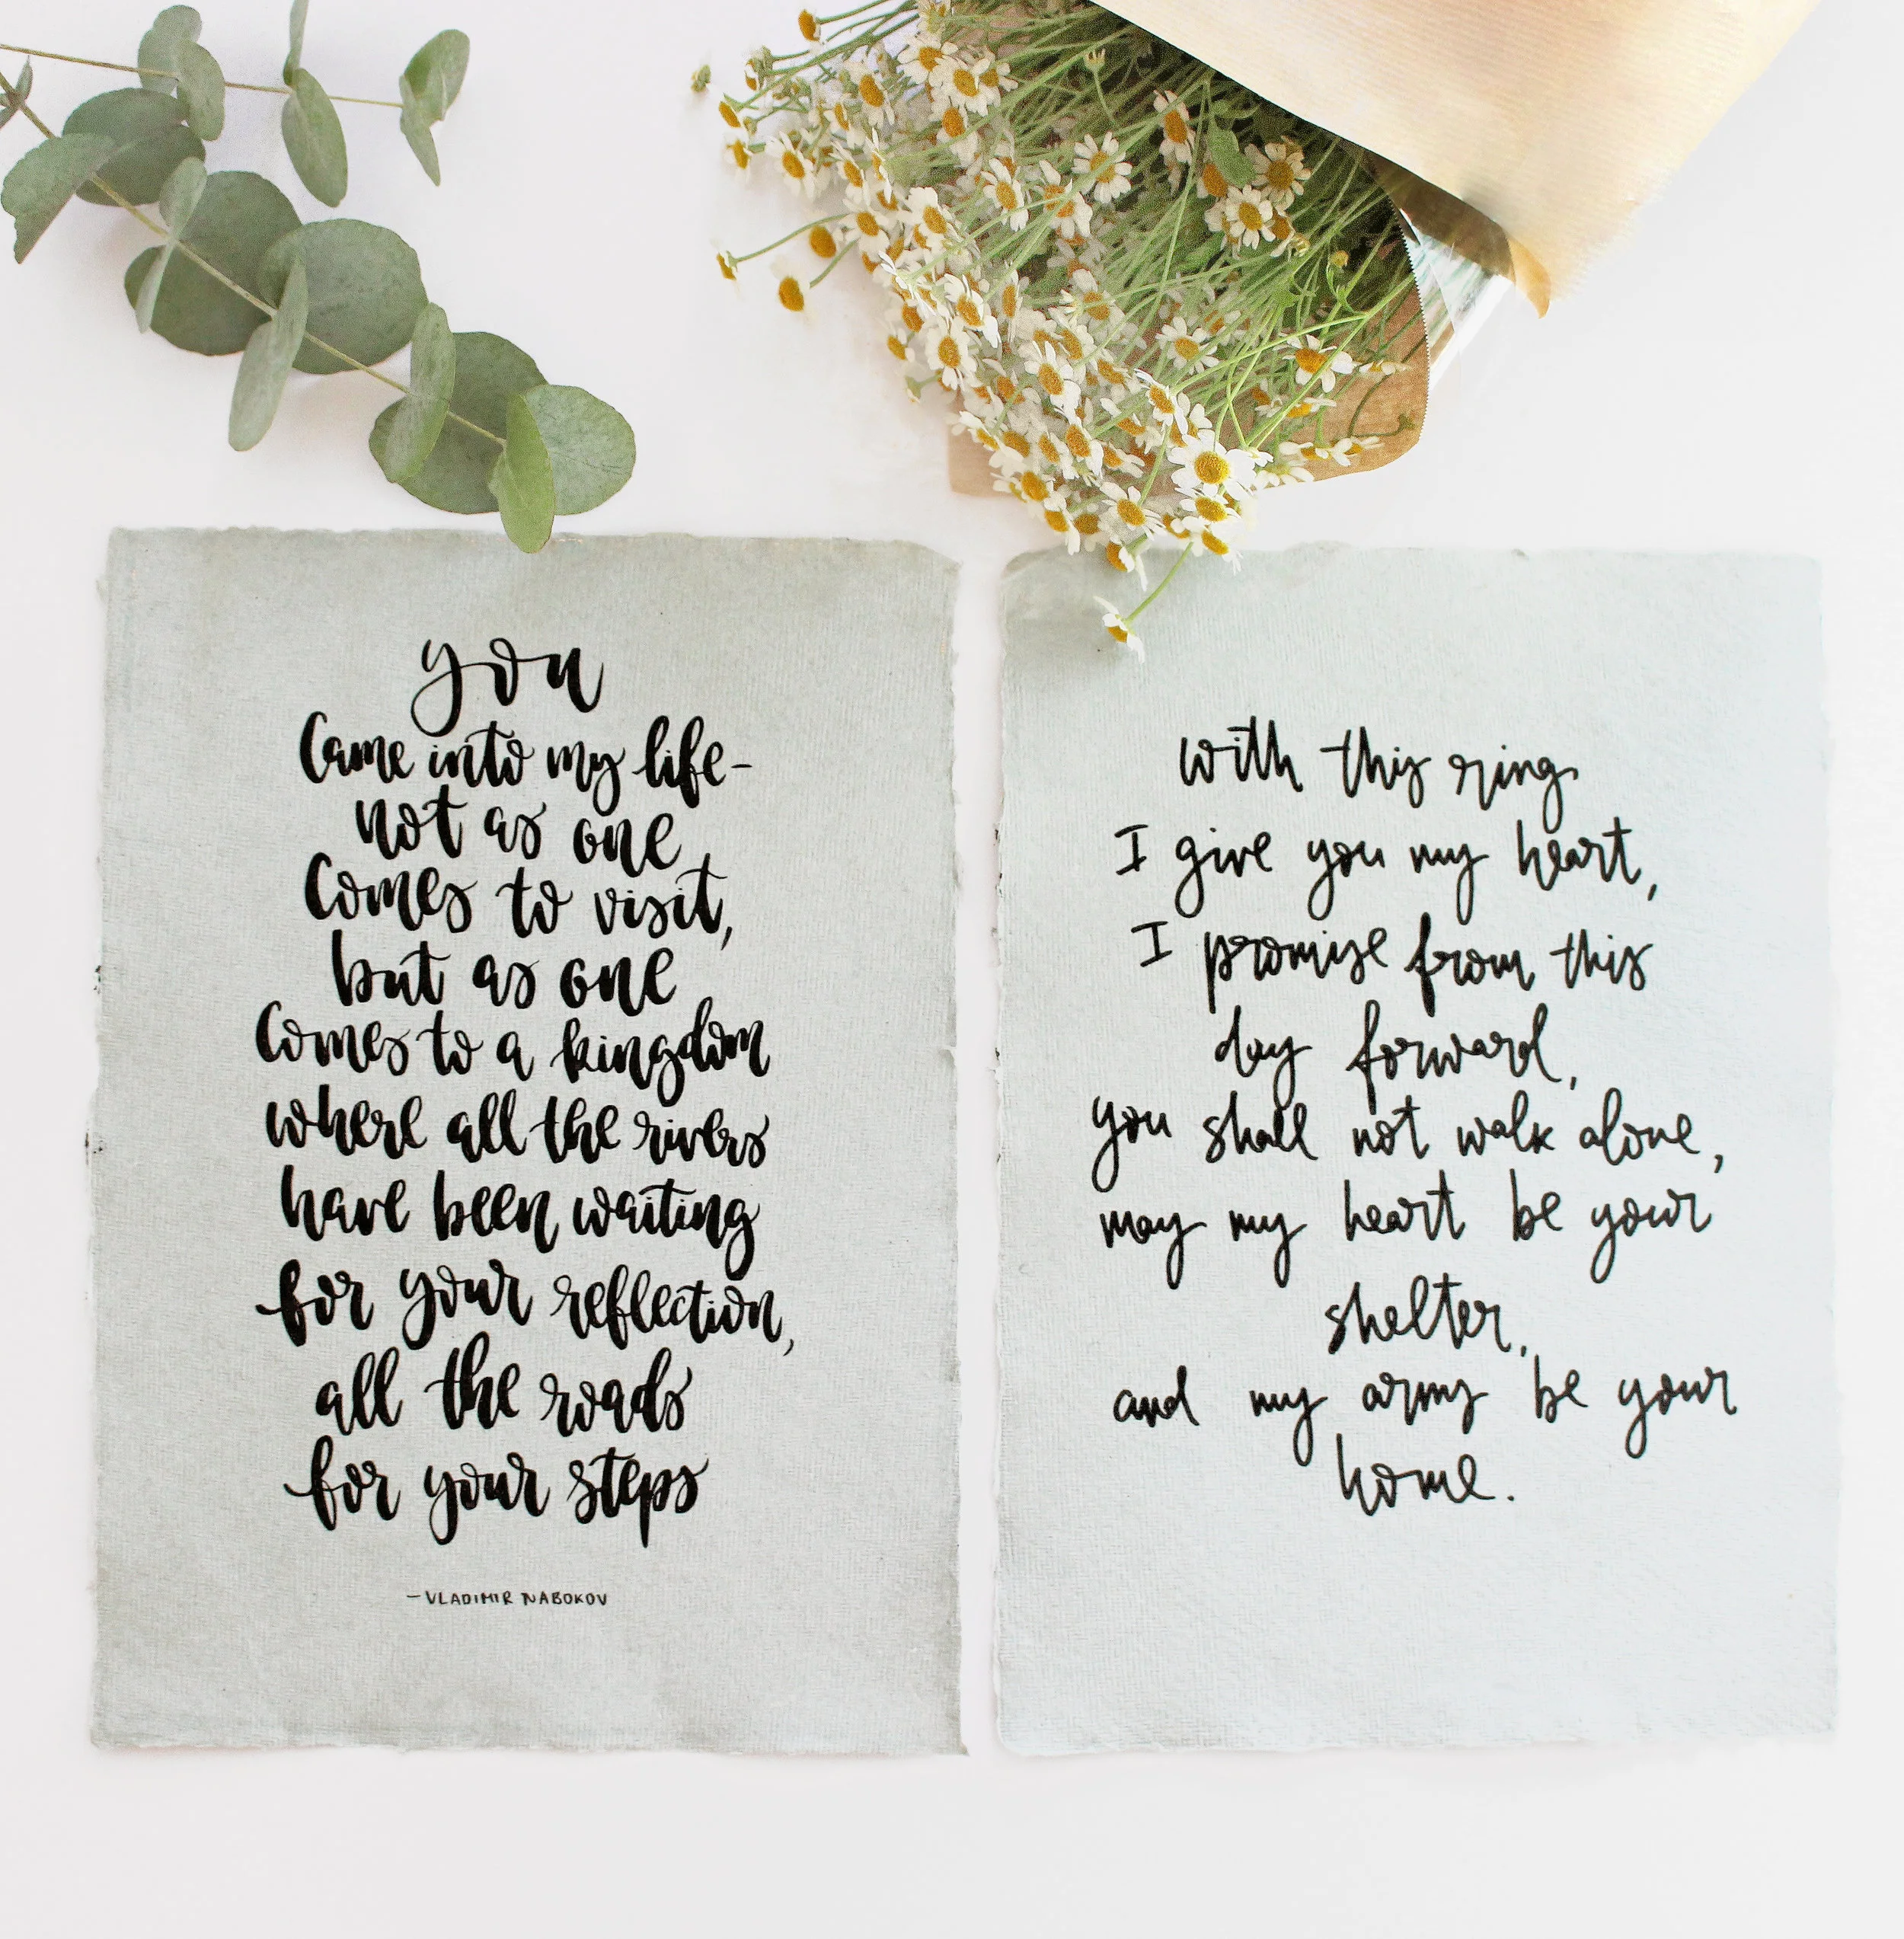 you
Came into my life-
not as one
Comes to visit,
but as one
Comes to a kingdom
where all the rivers
have been waiting
for your reflection,
all the roads
for your steps
-VLADIMIR NABOKOV
with this ring
I give you my heart,
I promise from this
day forward,
you shall not walk alone,
may my heart be your
shelter,
and my arms be your
home.